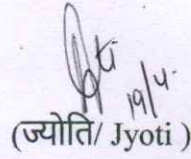 19/4
(ज्योति/ Jyoti )